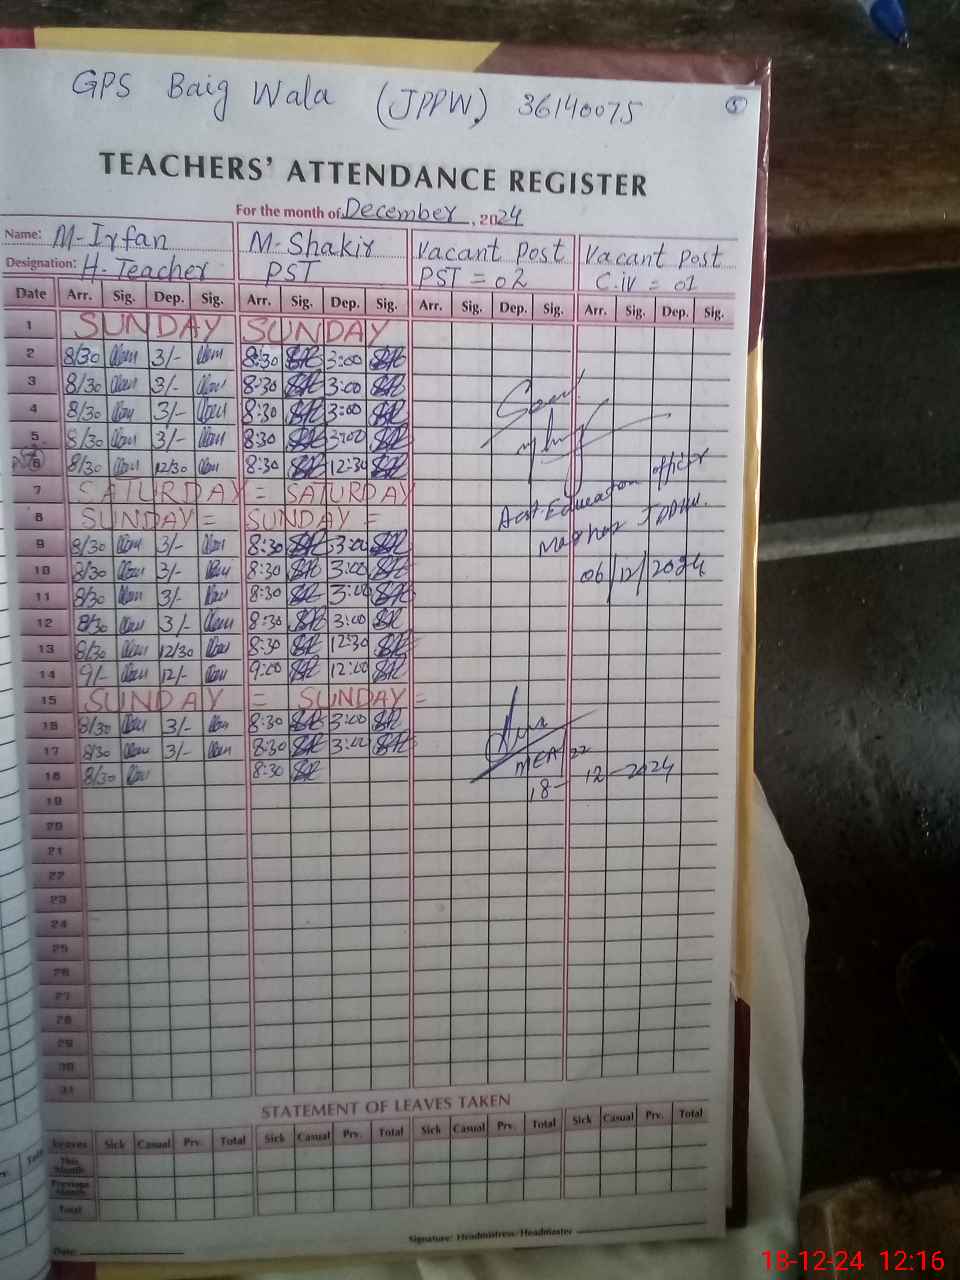 GPS Baig Wala (JPPW) 36140075 5
TEACHERS' ATTENDANCE REGISTER
For the month of December, 2024
Name: M-Irfan M-Shakir Vacant Post Vacant Post
Designation: H-Teacher PST PST = 02 C.iv = 01
Date Arr. Sig. Dep. Sig. Arr. Sig. Dep. Sig. Arr. Sig. Dep. Sig. Arr. Sig. Dep. Sig.
1 SUNDAY SUNDAY
2 8/30 3/- 8:30 3:00
3 8/30 3/- 8:30 3:00
4 8/30 3/- 8:30 3:00
5 8/30 3/- 8:30 3:00
6 8/30 12/30 8:30 12:30
7 SATURDAY = SATURDAY
8 SUNDAY = SUNDAY =
Asst. Education officer
9 8/30 3/- 8:30 3:00
10 8/30 3/- 8:30 3:00 06/12/2024
11 8/30 3/- 8:30 3:00
12 8/30 3/- 8:30 3:00
13 8/30 12/30 8:30 12:30
14 9/- 12/- 9:00 12:00
15 SUNDAY = SUNDAY =
16 8/30 3/- 8:30 3:00
17 8/30 3/- 8:30 3:00 MEA/22
18 8/30 8:30 18-12-2024
19
20
21
22
23
24
25
26
27
28
29
30
31
STATEMENT OF LEAVES TAKEN
Leaves Sick Casual Prv. Total Sick Casual Prv. Total Sick Casual Prv. Total Sick Casual Prv. Total
This Month
Previous Month
Total
Date: Signature: Headmistress/Headmaster
18-12-24 12:16